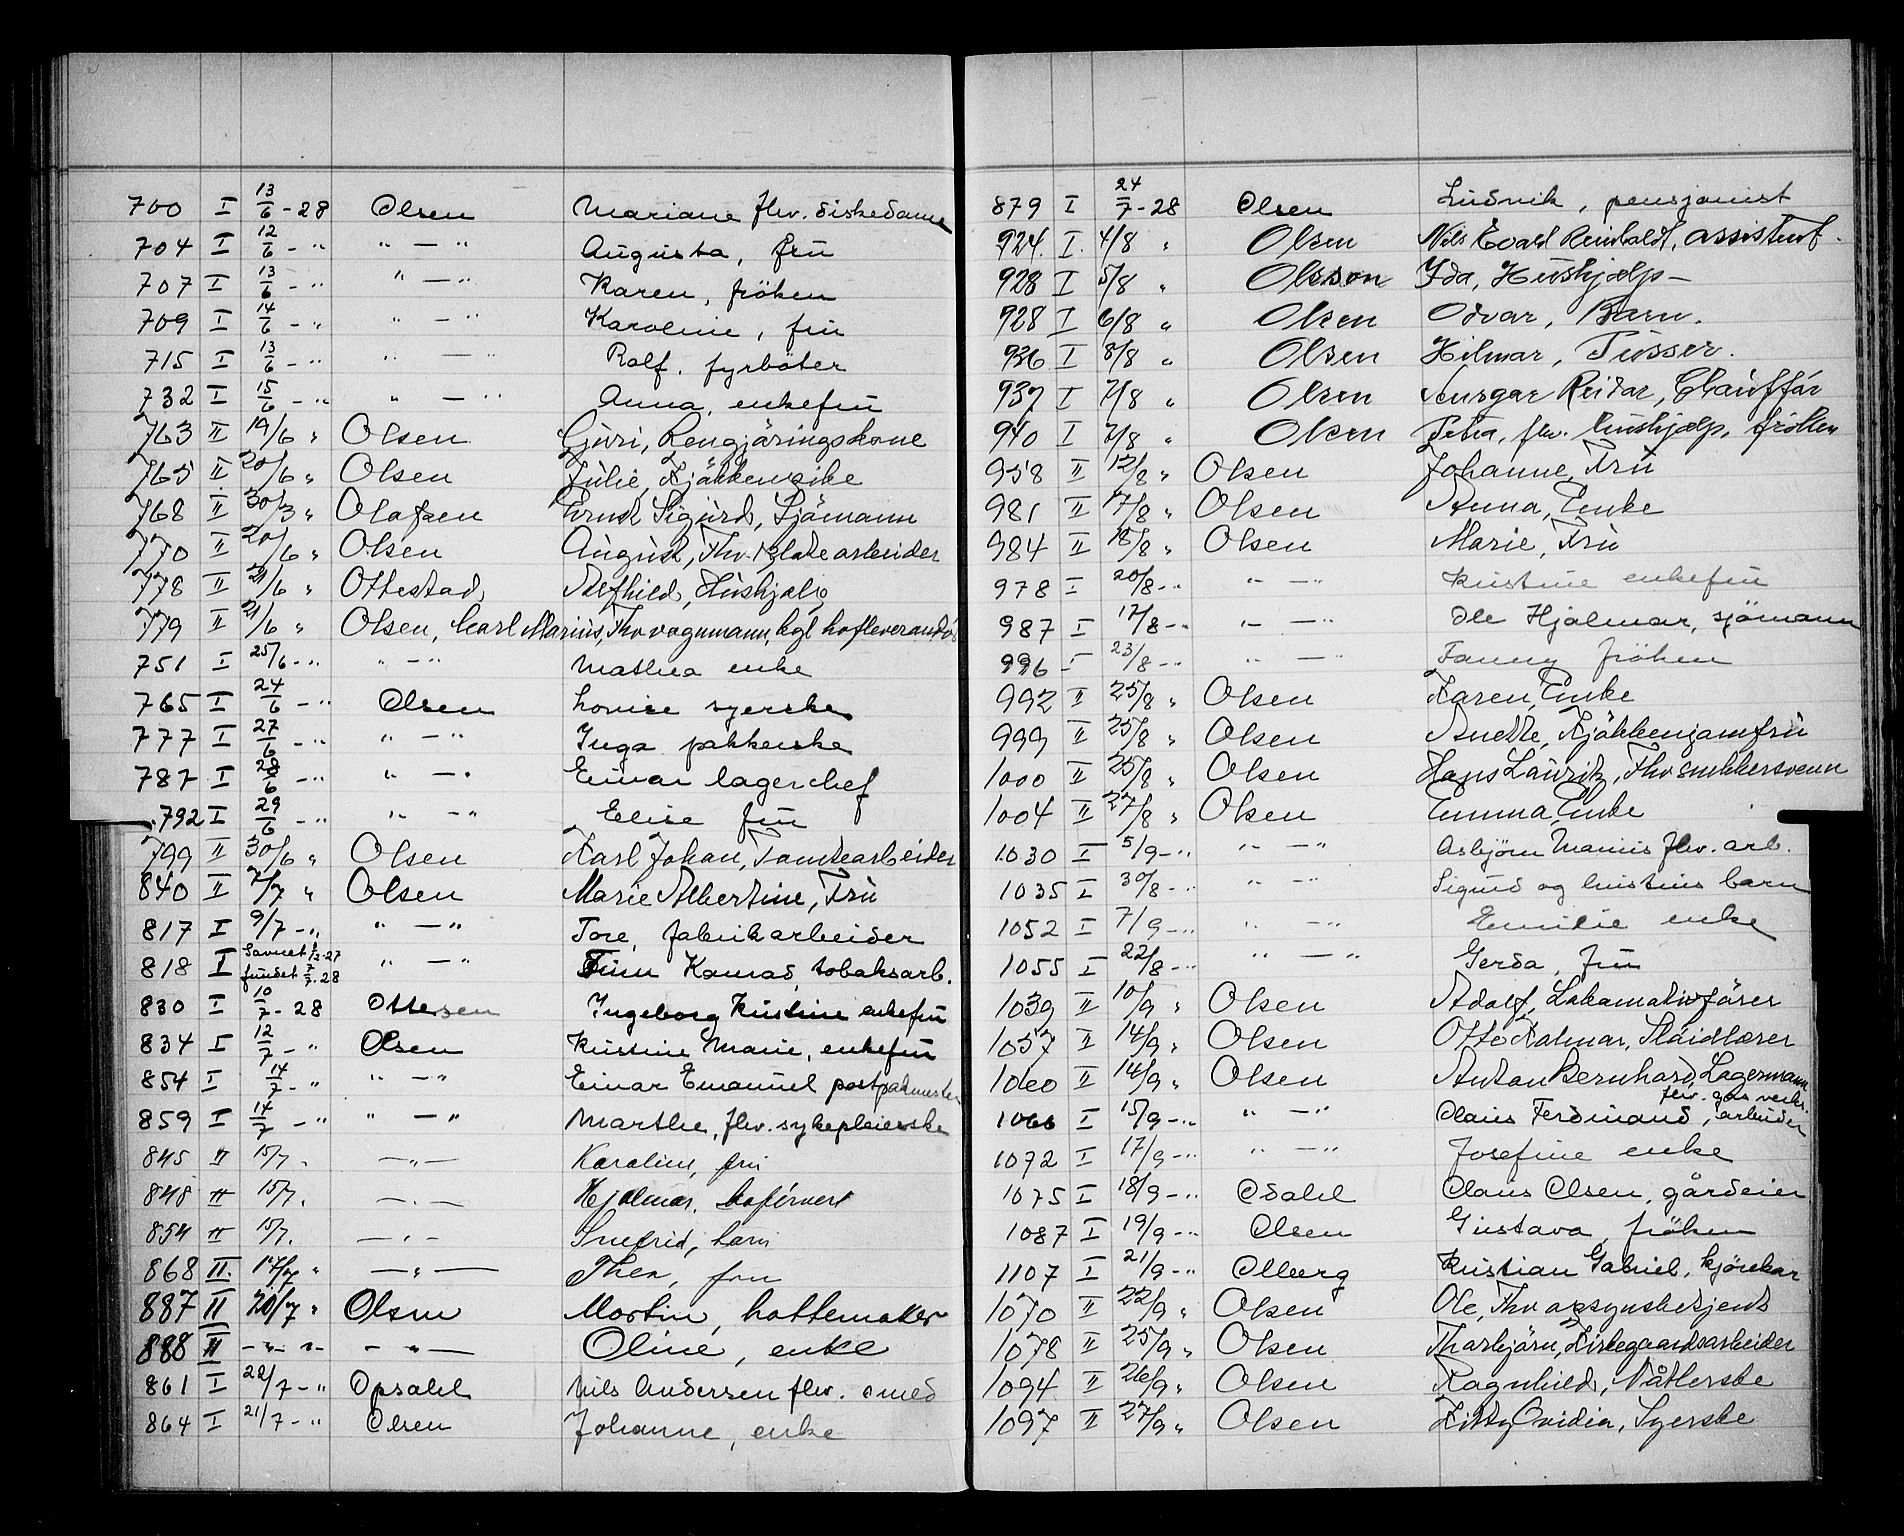 700 I 13/6 - 28 Olsen Mariane fhv. diskedame
704 I 12/6 - " " — " Augusta, fru
707 I 13/6 - " " — " Karen, fröken
709 I 14/6 - " " — " Karoline, fru
715 I 13/6 - " " — " Rolf, fyrböter
732 I 15/6 - " " — " Anna, enkefru
763 II 19/6 " Olsen Guri, Rengjöringskone
765 II 20/6 " Olsen Julie, Kjökkenpike
768 II 30/3 " Olafsen Ernst Sigurd, Sjömann
770 II 20/6 " Olsen August, Fhv. platearbeider
778 II 21/6 " Ottestad, Alfhild, Hushjælp
779 II 21/6 " Olsen, Carl Marius, Fhv vognmann, kgl hofleverandör
751 I 25/6 - " " — " Mathea enke
765 I 24/6 - " Olsen Louise syerske
777 I 27/6 - " " — " Inga pakkerske
787 I 28/6 - " " — " Einar lagerchef
792 I 29/6 - " " — " Elise fru
799 II 30/6 " Olsen Karl Johan, Tomtearbeider
840 II 7/7 " Olsen Marie Albertine, Fru
817 I 9/7 - " " — " Tore, fabrikarbeider
818 I Savnet 1/12-27 fundet 7/7-28 " — " Finn Konrad, tobaksarb.
830 I 10/7 - 28 Ottersen Ingeborg Kristine enkefru
834 I 12/7 - " Olsen Kristine Marie, enkefru
854 I 14/7 - " " — " Einar Emanuel postpakmester
859 I 14/7 - " " — " Marthe, fhv. sykepleierske
845 II 15/7. — " — Karoline, fru
848 II 15/7. — " — Hjalmar,
854 II 15/7. — " — Snefrid, barn
868 II. 14/7 " — " — Thea, fru
887 II 20/7 " Olsen Martin, hattemaker
888 II - " - " - — " — Oline, enke
861 I 22/7 - " Opsahl Nils Andersen fhv. smed
864 I 21/7 - " Olsen Johanne, enke
879 I 24/7 - 28 Olsen Ludvik, pensjonist
924. I. 4/8 " Olsen Nils Evald Reinholdt, assistent.
928 I 5/8 " Olsson Ida, Hushjælp —
928 I 6/8 " Olsen Odvar, Barn.
936 I 8/8 " Olsen Hilmar, Pusser.
937 I 7/8 " Olsen Ansgar Reidar, Chauffør
940 I 7/8 " Olsen Petra, fhv. hushjælp, fröken
958 II 12/8 " Olsen Johanne, Fru
981 II 17/8 " Olsen Anna, Enke
984 II 18/8 " Olsen Marie, Fru
978 I 20/8 - " " — " Kristine enkefru
987 I 17/8 - " " — " Ole Hjalmar, sjömann
996 I 23/8 - " " — " Fanny fröken
992 II 25/8 " Olsen Karen, Enke
999 II 25/8 " Olsen Anette, Kjökkenjomfru
1000 II 25/8 " Olsen Hans Lauritz, Fhv snekkersvenn
1004 II 27/8 " Olsen Emma, Enke
1030 I 5/9 - " " — " Asbjörn Marius fhv. arb.
1035 I 30/8 - " " — " Sigurd og hustrus barn
1052 I 7/9 - " " — " Emilie enke
1055 I 22/8 - " " — " Gerda, fru
1039 II 10/9 " Olsen Adolf, Lokomotivförer
1057 II 14/9 " Olsen Otto Kalmar, Sløidlærer
1060 II 14/9 " Olsen Anton Bernhard, Lagermann
1066 I 15/9 - " " — " Claus Ferdinand, fhv. gas verks. arbeider
1072 I 17/9 - " " — " Josefine enke
1075 I 18/9 - " Odahl Claus Olsen, gårdeier
1087 I 19/9 - " Olsen Gustava, fröken
1107 I 21/9 - " Olberg Kristian Gabriel, kjörekar
1070 II 22/9 " Olsen Ole, Fhv opsynsbetjent
1078 II 25/9 " Olsen Thorbjörn, Kirkegaardsarbeider
1094 II 26/9 " Olsen Ragnhild, Nåtlerske
1097 II 27/9 " Olsen Kitty Ovidia, Syerske